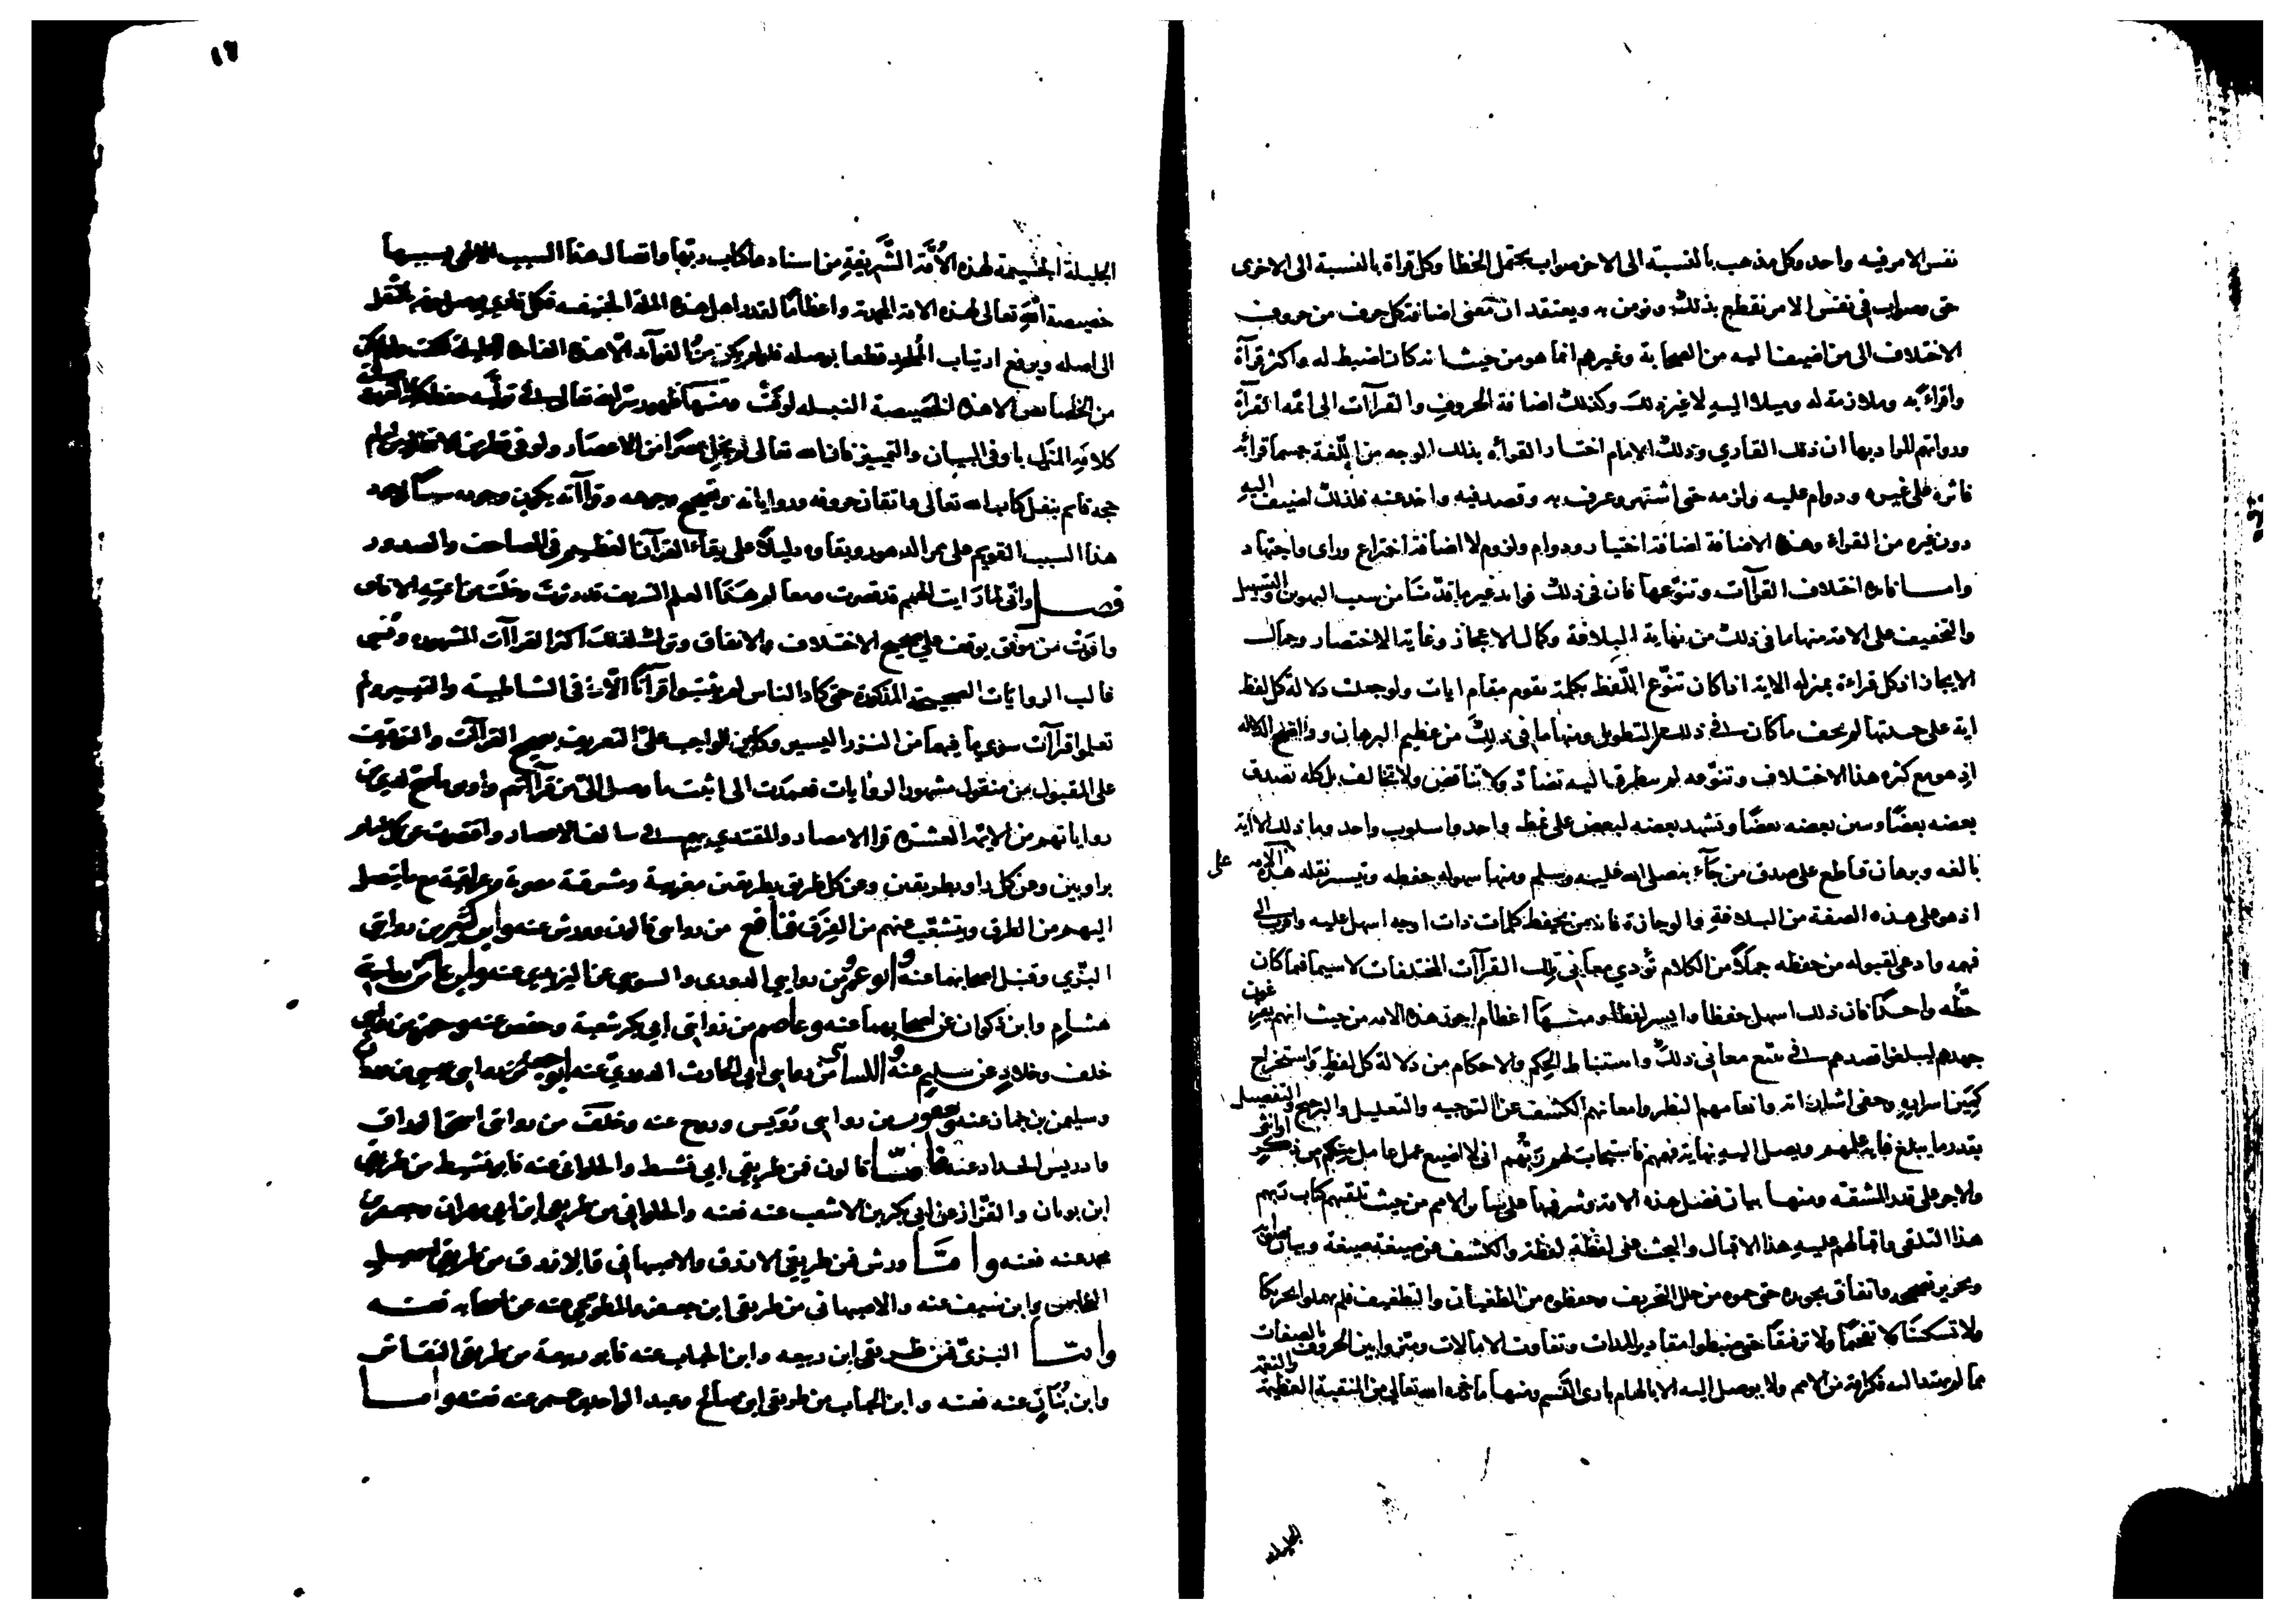 نفس الامر فيه واحد وكل مذهب بالنسبة الى الاخر صواب يحتمل الخطأ وكل قراة بالنسبة الى الاخرى
حق وصواب في نفس الامر نقطع بذلك ونومن به ويعتقد ان معنى اضافة كل حرف من حروف
الاختلاف الى من اضيف اليه من الصحابة وغيرهم انما هو من حيث انه كان اضبط له واكثر قرآة
واقراء به وملازمة له وميلا اليه لا غير ذلك وكذلك اضافة الحروف والقرآآت الى ائمه القرآة
ورواتهم المراد بها ان ذلك القاري وذلك الامام اختار القراه بذلك الوجه من اللغة حسبما قرا به
فاثره على غيره وداوم عليه ولزمه حتى اشتهر وعرف به وقصد فيه واخذ عنه فلذلك اضيف اليه
دون غيره من القراء وهذه الاضافة اضافة اختيار ودوام ولزوم لا اضافة اختراع وراى واجتهاد
واما فائده اختلاف القرآآت وتنوعها فان في ذلك فوائد غير ما قدمنا من سبب التهوين والتسهيل
والتخفيف على الامة منها ما في ذلك من نهاية البلاغة وكمال الاعجاز وغاية الاختصار وجمال
الايجاز اذ كل قراءة بمنزله الاية اذ كان تنوع اللفظ بكلمة تقوم مقام ايات ولو جعلت دلالة كل لفظ
اية على حدتها لم يخف ما كان في ذلك من التطويل ومنها ما في ذلك من عظيم البرهان وواضح الدلاله
اذ هو مع كثره هذا الاختلاف وتنوعه لم يتطرق اليه تضاد ولا تناقض ولا تخالف بل كله يصدق
بعضه بعضا ويبين بعضه بعضا ويشهد بعضه لبعض على نمط واحد واسلوب واحد وما ذلك الا اية
بالغه وبرهان قاطع على صدق من جآء به صلى الله عليه وسلم ومنها سهوله حفظه وتيسر نقله على هذه الامه
اذ هو على هذه الصفة من البلاغة والوجازة فانه من يحفظ كلمات ذات اوجه اسهل عليه واقرب الى
فهمه وادعى لقبوله من حفظه جملا من الكلام تؤدي معاني تلك القرآآت المختلفات لا سيما فيما كان
خطه واحدا فان ذلك اسهل حفظا وايسر لفظا ومنها اعظام اجور هذه الامه من حيث انهم يفرغون
جهدهم ليبلغوا قصدهم في تتبع معاني ذلك واستنباط الحكم والاحكام من دلالة كل لفظ واستخراج
كمين اسراره وخفى اشاراته وانعامهم النظر وامعانهم الكشف عن التوجيه والتعليل والترجيح والتفصيل
بقدر ما يبلغ غاية علمهم ويصل اليه نهاية فهمهم فاستجاب لهم ربهم اني لا اضيع عمل عامل منكم من ذكر او انثى
والاجر على قدر المشقه ومنها بيان فضل هذه الامة وشرفها على سائر الامم من حيث تلقيهم كتاب ربهم
هذا التلقى واقبالهم عليه هذا الاقبال والبحث عن لفظة لفظة والكشف عن صيغة صيغة وبيان صوابه
وتحرير تصحيحه واتقان تجويده حتى حموه من خلل التحريف وحفظوه من الطغيان والتطفيف فلم يهملوا تحريكا
ولا تسكينا ولا تفخيما ولا ترقيقا حتى ضبطوا مقادير المدات وتفاوت الامالات وميزوا بين الحروف بالصفات
مما لم يهتد اليه فكر امة من الامم ولا يوصل اليه الا بالهام بارى النسم ومنها ما ذخره الله تعالى من المنقبة العظيمة
الجليلة
١٦
الجليلة الجسيمة لهذه الأمة الشريفة من اسنادها كتاب ربها واتصال هذا السبب الالهي بسببها
خصيصة الله تعالى لهذه الامة المحمدية واعظاما لقدر اهل هذه الملة الحنيفيه فكل قارئ يوصل حرفه بالنقل
الى اصله ويرفع ارتياب الملحد قطعا بوصله فلو لم يكن من الفوائد الا هذه الفائدة الجليلة لكفت ولو لم يكن
من الخصائص الا هذه الخصيصة النبيله لوفت ومنها ظهور سر الله تعالى في توليه حفظ كتابه العزيز وصيانة
كلامه المنزل باوفى البيان والتمييز فان الله تعالى لم يخل عصرا من الاعصار ولو في قطر من الاقطار من امام
حجة قائم بنقل كتاب الله تعالى واتقان حروفه ورواياته وتصحيح وجوهه وقرآآته يكون وجوده سببا لوجود
هذا السبب القويم على ممر الدهور وبقاوه دليلا على بقاء القرآن العظيم في المصاحف والصدور
فصل وانى لما رايت الهمم قد قصرت ومعالم هذا العلم الشريف قد دثرت وخلت من ائمته الافاق
واقوت من موفق يوقف على صحيح الاختلاف والاتفاق وترك لذلك اكثر القرآآت المشهورة ونسى
غالب الروايات الصحيحة المذكورة حتى كاد الناس لم يثبتوا قرآنا الا ما في الشاطبية والتيسير ولم
تعلموا قرآآت سوى ما فيهما من النزر اليسير وكان من الواجب علي التعريف بصحيح القرآآت والتوقيف
على المقبول من منقول مشهور الروايات فعمدت الى اثبت ما وصل الي من قرآآتهم واوثق ما صح لدي من
رواياتهم من الايمة العشرة قراء الامصار والمقتدى بهم في سالف الاعصار واقتصرت عن كل امام
براويين وعن كل راو بطريقين وعن كل طريق بطريقين مغربية ومشرقية مصرية وعراقية مع ما يتصل
اليهم من الطرق ويتشعب عنهم من الفرق فنافع من روايتى قالون وورش عنه وابن كثير من روايتى
البزي وقنبل عن اصحابهما عنه وابو عمرو من روايتى الدوري والسوسي عن اليزيدي عنه وابن عامر من روايتى
هشام وابن ذكوان عن اصحابهما عنه وعاصم من روايتي ابي بكر شعبة وحفص عنه وحمزة من روايتى
خلف وخلاد عن سليم عنه والكسائي من روايتى ابي الحارث والدوري عنه وابو جعفر من روايتى عيسى بن وردان
وسليمن بن جماز عنه ويعقوب من روايتى رويس وروح عنه وخلف من روايتى اسحق الوراق
وادريس الحداد عنه فاما قالون فمن طريقي ابي نشيط والحلواني عنه فابو نشيط من طريقى
ابن بويان والقزاز عن ابي بكر بن الاشعث عنه فعنه والحلواني من طريقى ابن ابي مهران وجعفر بن
محمد عنه فعنه واما ورش فمن طريقي الازرق والاصبهاني فالازرق من طريقى اسمعيل
النحاس وابن سيف عنه والاصبهاني من طريقى ابن جعفر والمطوعي عنه عن اصحابه فعنه
واما البزي فمن طريقى ابن ربيعه وابن الحباب عنه فابو ربيعة من طريقى النقاش
وابن بنان عنه فعنه وابن الحباب من طريقى ابن صالح وعبد الواحد بن عمر عنه فعنه واما